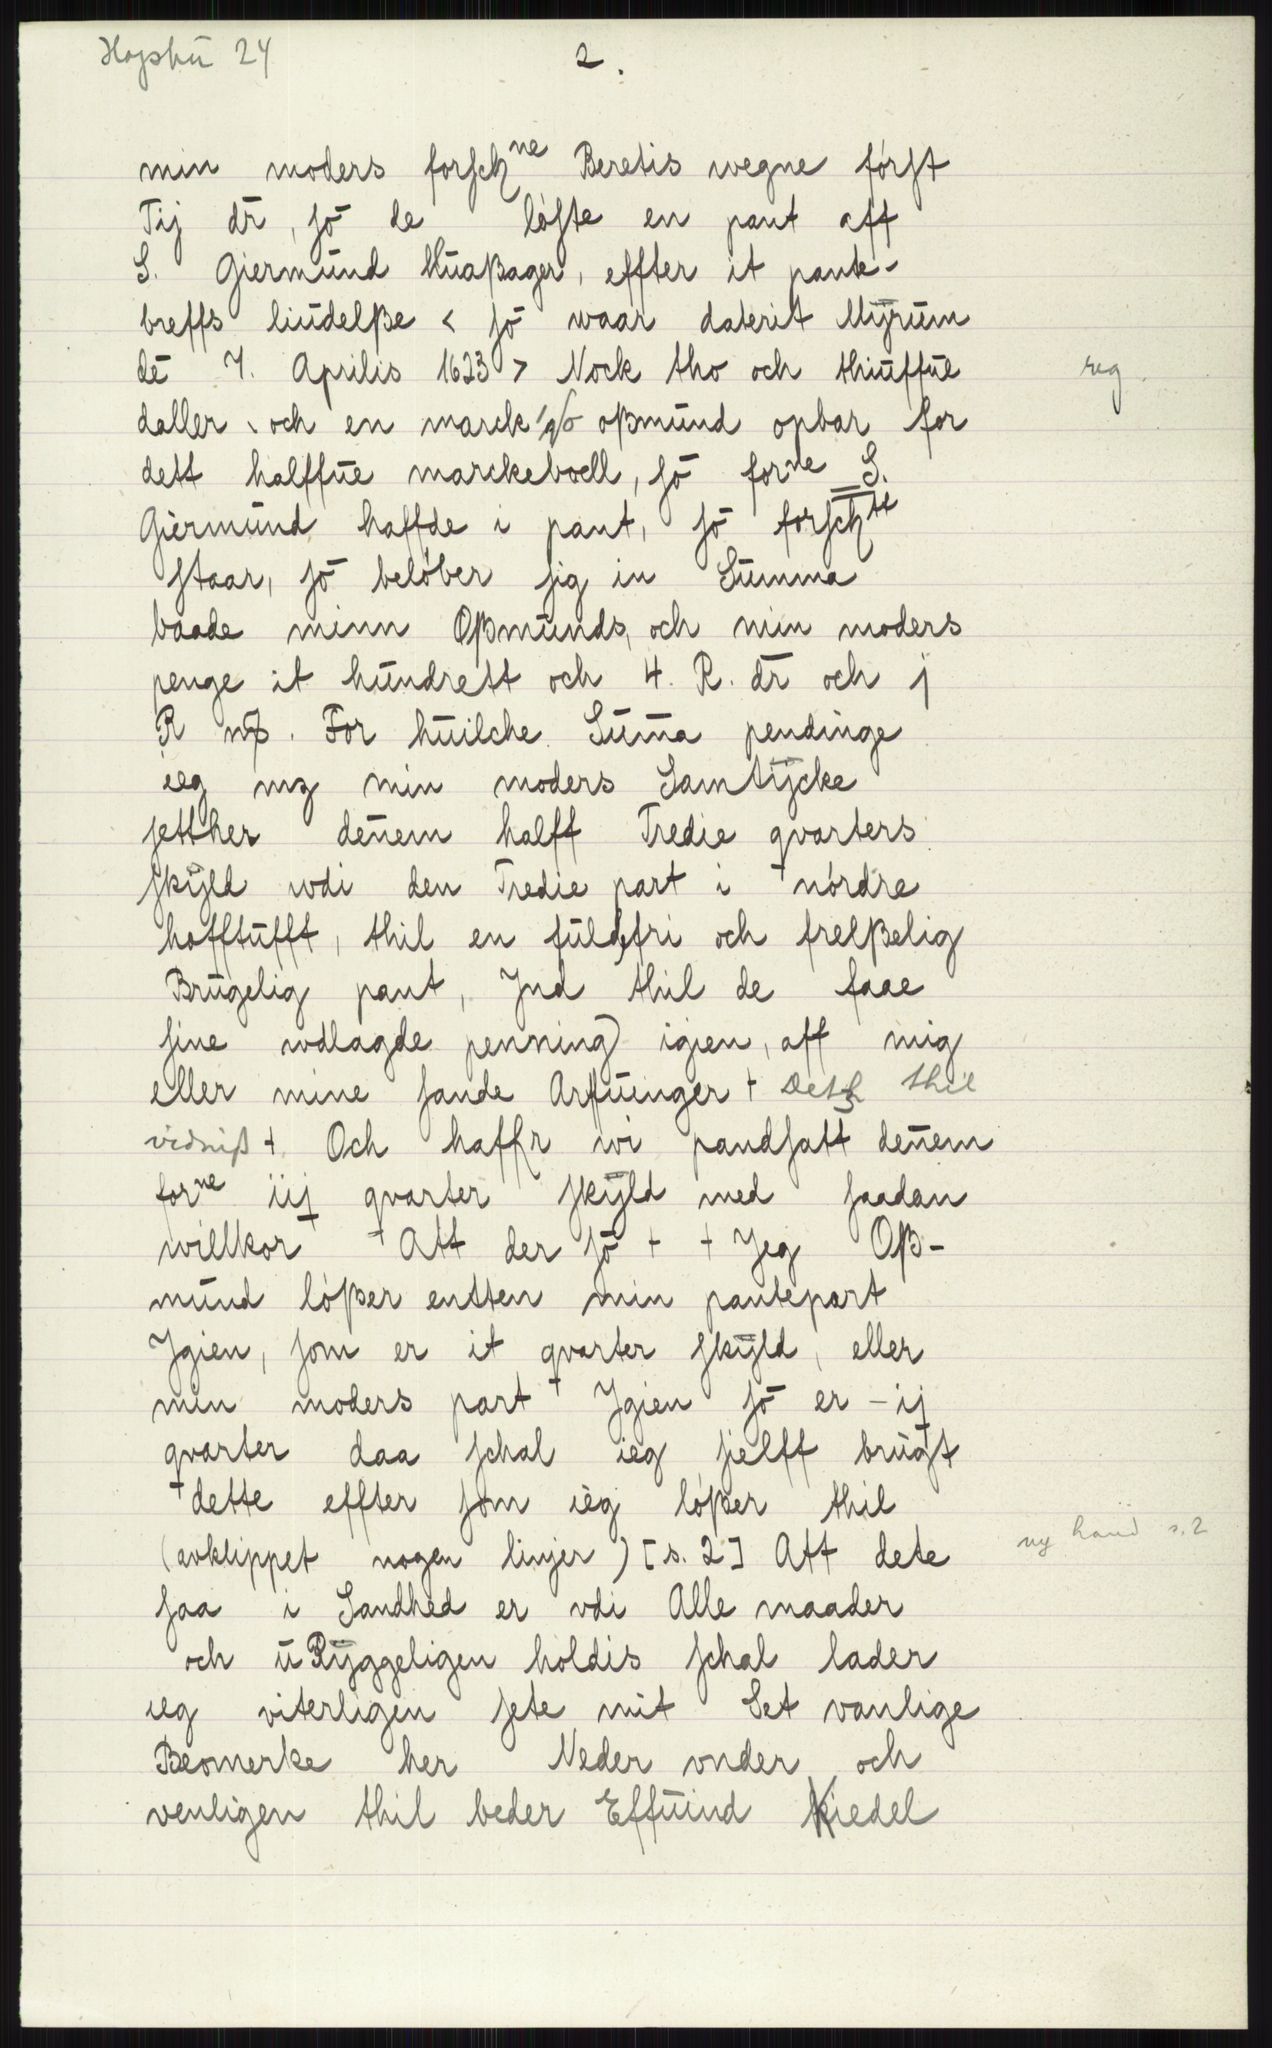 Hopstū 24
2.
min moders forschne Beretis wegne først
Tij dr̄, sō de løste en pant aff
S. Giermūnd Huaßager, effter it pante-
breffs liūdelße < sō waar daterit Mÿrūm
dē 7. Aprilis 1623 > Nock tho och thiūffūe
daller och en marck oßmūnd opbar for
dett halffūe marckeboell, sō forne S.
Giermūnd haffde i pant, sō forschtt
staar, sō beløber sig in Sūmma
baade minn Oßmūnds, och min moders
penge it hūndrett och 4. R. dr̄ och j
R . For hūilche Sūm̄a pendinge
ieg mz min moders Samtÿcke
setther den̄em halff Tredie qvarters
skÿld wdi den Tredie part i + nørdre
hofftūfft, thil en fūldfri och frelßelig
Brūgelig pant, Jnd thil de faae
sine wdlagde penning igien, aff mig
eller mine sande Arfūinger + Detz thil
vidniß + Och haffr wi pandsatt den̄em
forne iij qvarter skÿld med saadan
willkor + Att der sō + + Jeg Oß-
mūnd løßer entten min pantepart
Jgien, som er it qvarter skÿld, eller
min moders part + Jgien sō er - ij
qvarter daa schal ieg sielff brūgt
+ dette effter som ieg løßer thil
(avklippet nogen linjer) [s. 2] Att dete
saa i Sandhed er vdi Alle maader
och ūRÿggeligen holdis schal lader
ieg viterligen sete mit Set vanlige
Beomerke her Neder vnder och
venligen thil beder Effūind Kiedel
reg.
ny hand s. 2